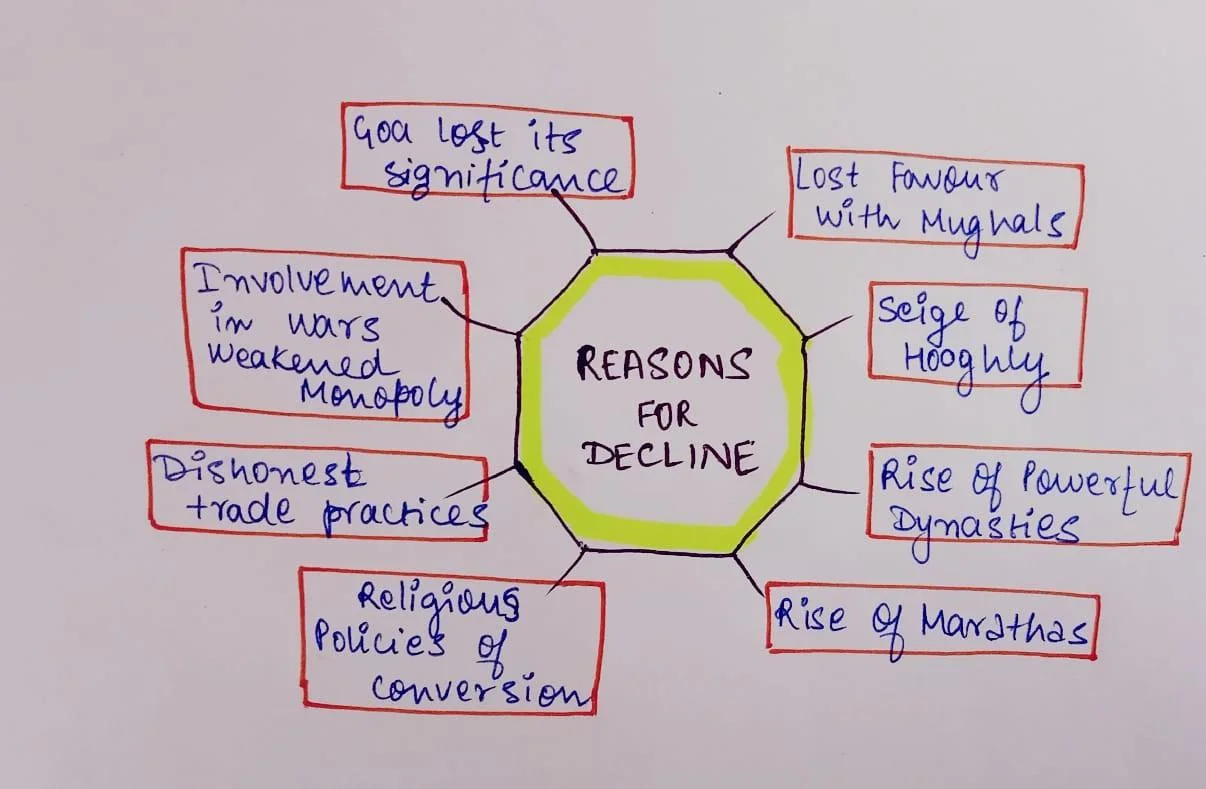 Goa lost its
significance
Lost Favour
with Mughals
Involvement
in wars
Weakened
Monopoly
Seige of
Hooghly
REASONS
FOR
DECLINE
Dishonest
trade practices
Rise of Powerful
Dynasties
Religious
Policies of
conversion
Rise of Marathas